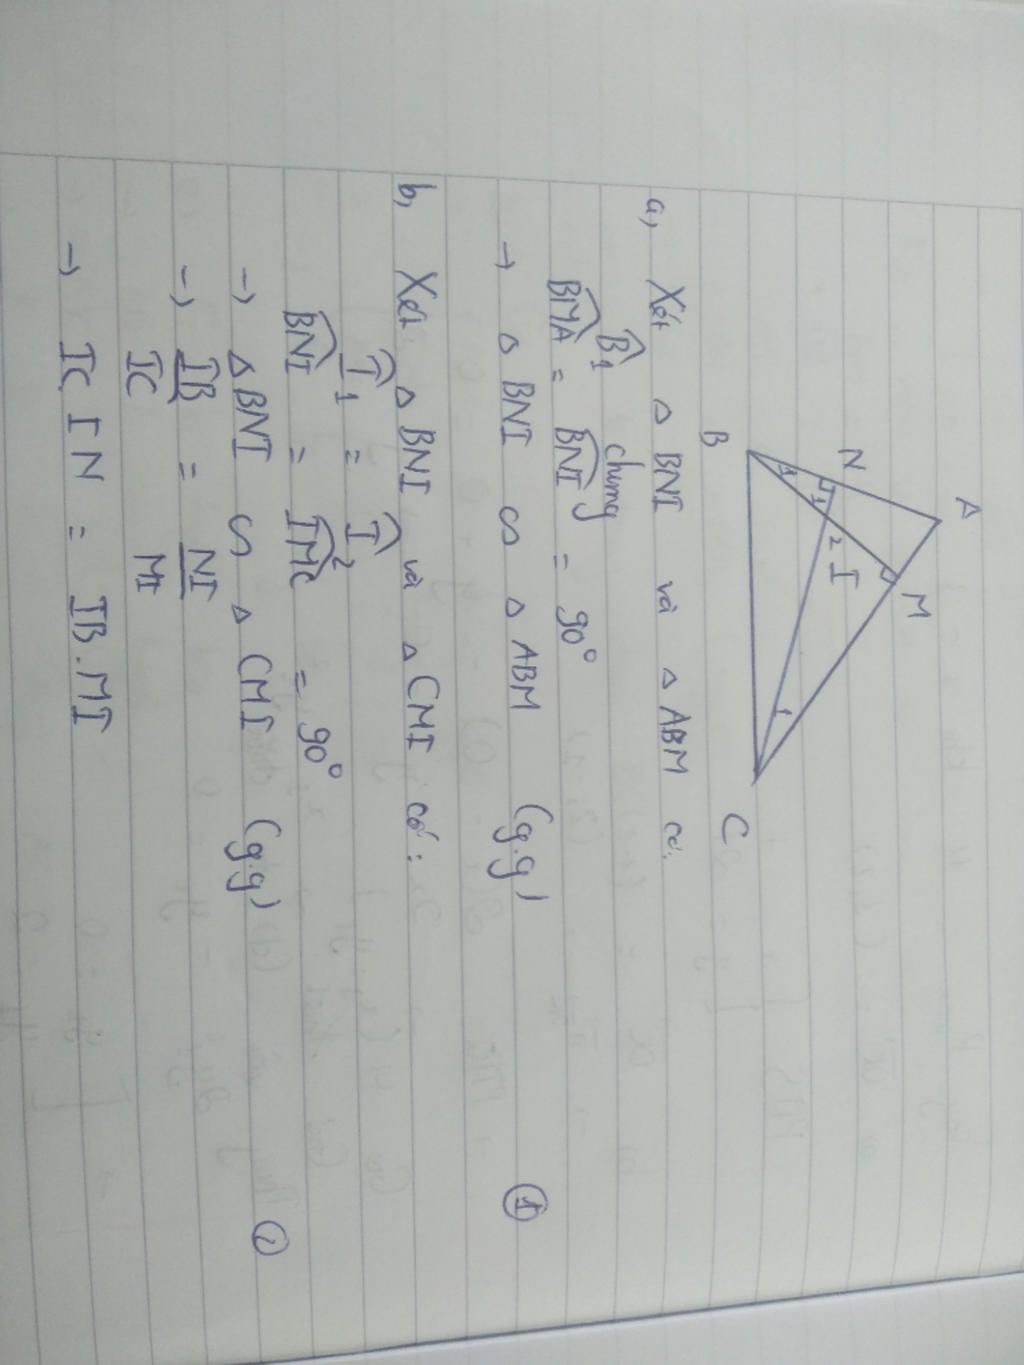 A
N
M
1
2
I
1
1
B
C
a, Xét △ BNI và △ ABM có:
B̂₁ chung
BMA = BNI = 90°
→ △ BNI ∽ △ ABM (g.g) ①
b, Xét △ BNI và △ CMI có:
Î₁ = Î₂
BNI = IMC = 90°
→ △ BNI ∽ △ CMI (g.g) ②
→ IB = NI
IC MI
→ IC IN = IB.MI